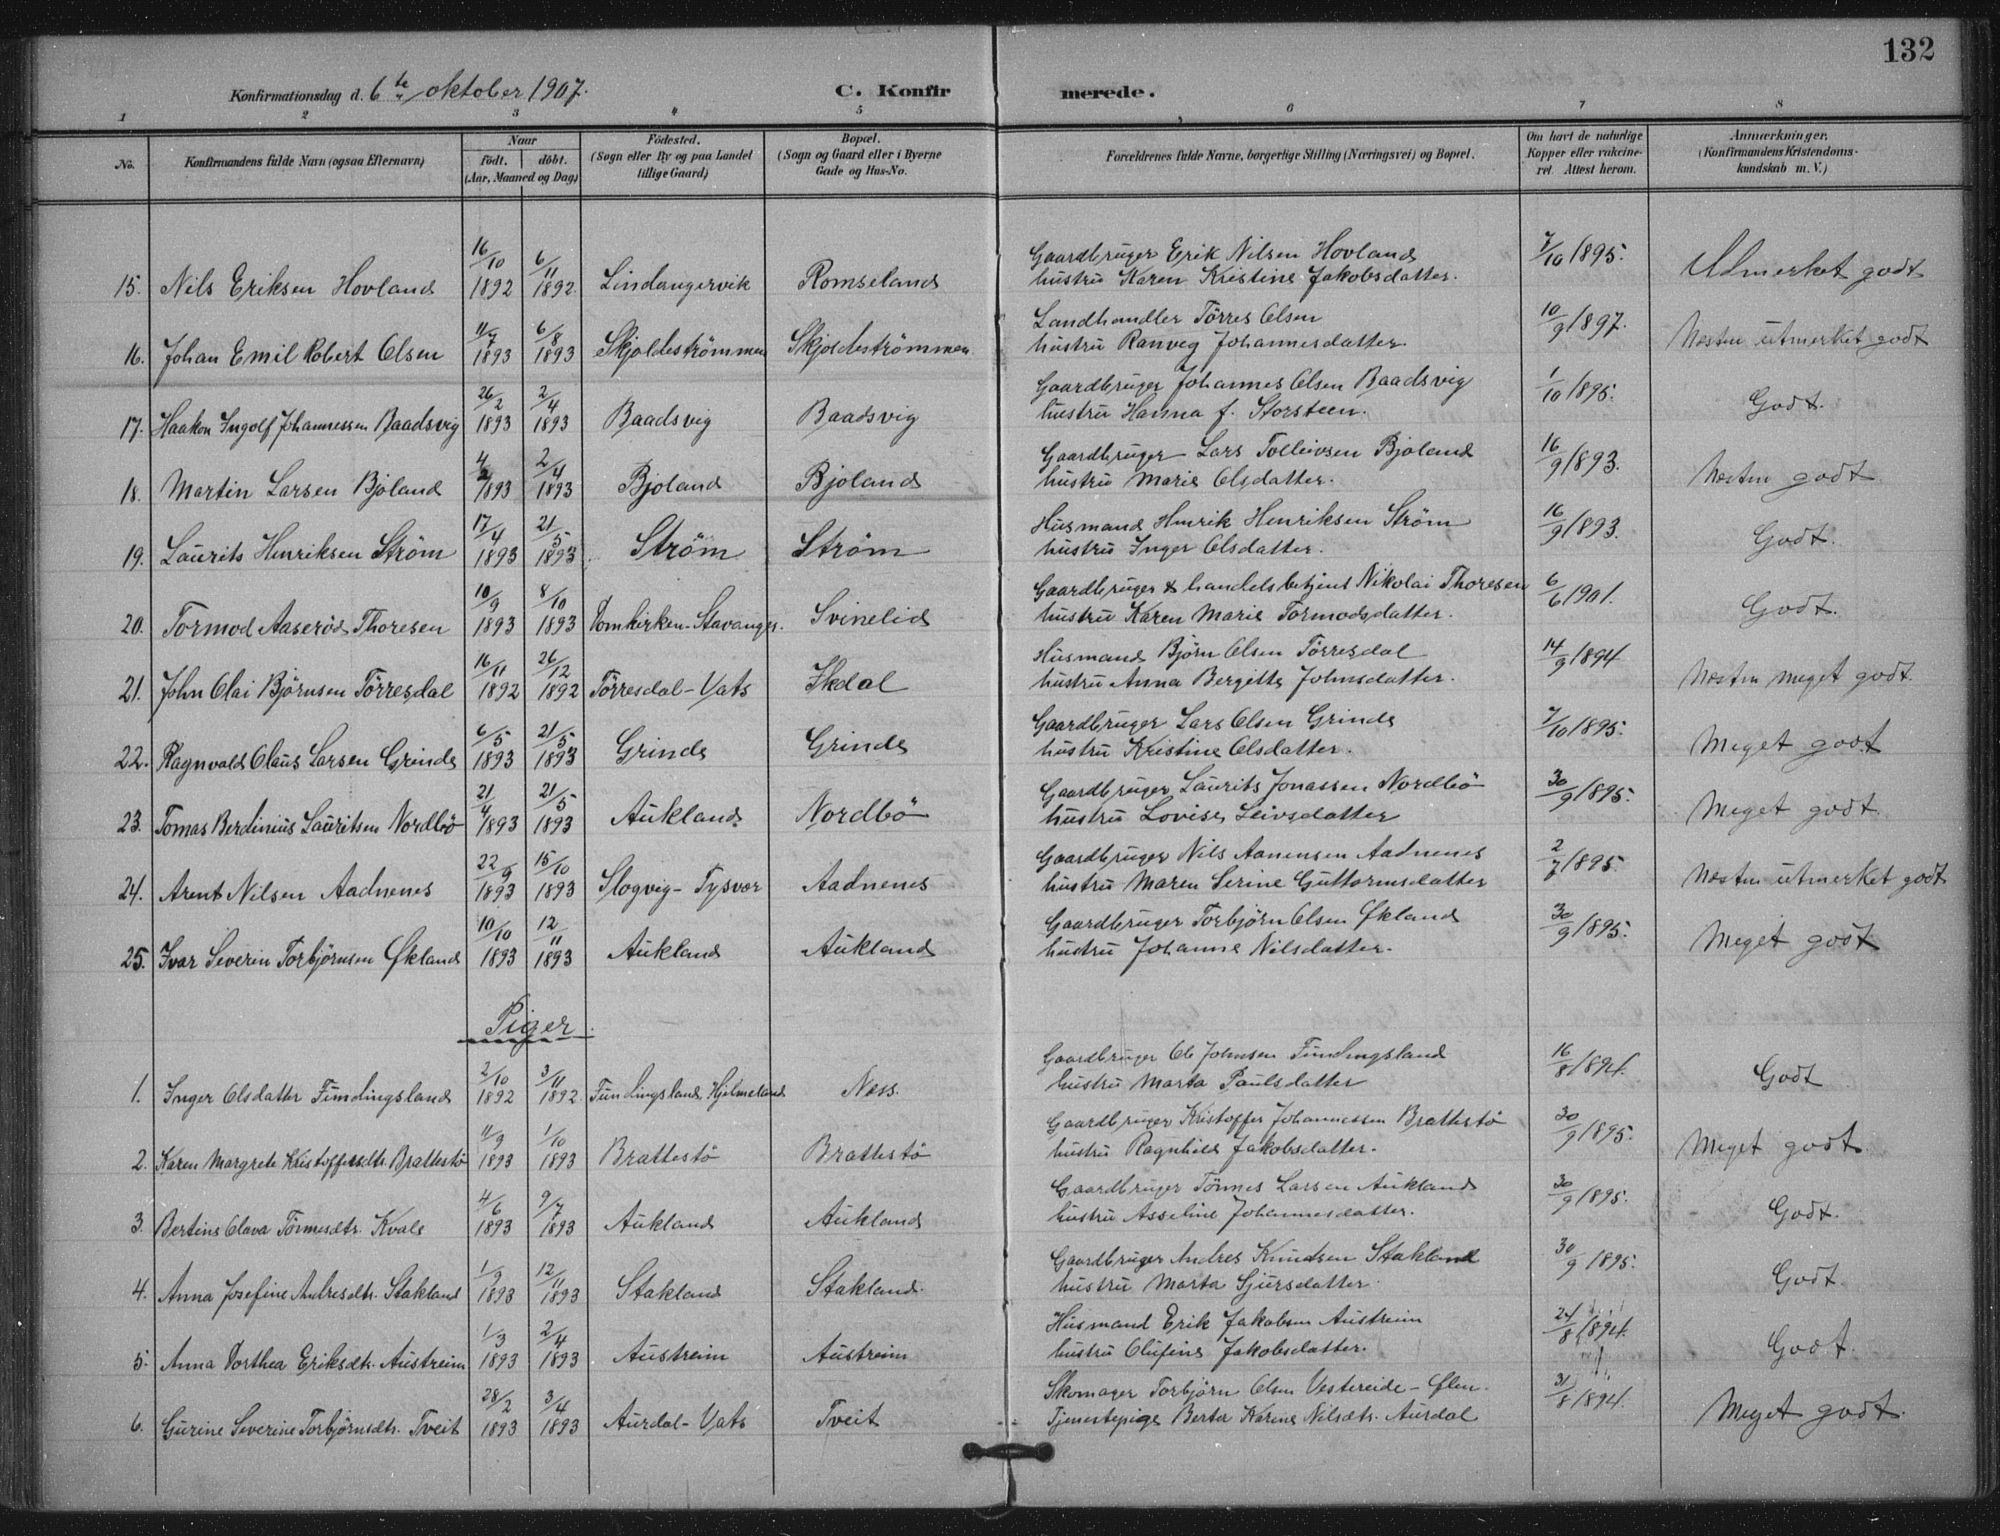 132
Konfirmationsdag d. 6te oktober 1907. C. Konfirmerede.
1 2 3 4 5 6 7 8
No. Konfirmandens fulde Navn (ogsaa Efternavn) Naar født. døbt. (Aar, Maaned og Dag) Fødested. (Sogn eller By og paa Landet tillige Gaard) Bopæl. (Sogn og Gaard eller i Byerne Gade og Hus-No. Forældrenes fulde Navne, borgerlige Stilling (Næringsvei) og Bopæl. Om havt de naturlige Kopper eller vakcineret. Attest herom. Anmærkninger. (Konfirmandens Kristendomskundskab m. V.)
15. Nils Eriksen Hovland 16/10 1892 6/11 1892. Lindangervik Romseland Gaardbruger Erik Nilsen Hovland 7/10 1895. Udmerket godt
hustru Karen Kristine Jakobsdatter.
16. Johan Emil Robert Olsen 11/7 1893 6/8 1893 Skjoldestrømmen Skjoldestrømmen Landhandler Tørres Olsen 10/9 1897. Næsten utmerket godt
hustru Ranveg Johannesdatter
17. Haakon Ingolf Johannessen Baadsvig 26/2 1893 2/4 1893 Baadsvig Baadsvig Gaardbruger Johannes Olsen Baadsvig 1/10 1895. Godt.
hustru Hanna f. Storsteen.
18. Martin Larsen Bjoland 4/2 1893 2/4 1893 Bjoland Bjoland Gaardbruger Lars Tolleivsen Bjoland 16/9 1893. Næsten godt
hustru Marie Olsdatter.
19. Laurits Henriksen Strøm 17/4 1893 21/5 1893 Strøm Strøm Husmand Henrik Henriksen Strøm 16/9 1893. Godt.
hustru Inger Olsdatter.
20. Tormod Aaserød Thoresen 10/9 1893 8/10 1893 Domkirken-Stavanger. Svinelid Gaardbruger & handelsbetjent Nikolai Thoresen 6/6 1901. Godt.
hustru Karen Marie Tormodsdatter.
21. John Olai Bjørnsen Tørresdal 16/11 1892 26/12 1892 Tørresdal-Vats Ikdal Husmand Bjørn Olsen Tørresdal 14/9 1894 Næsten meget godt.
hustru Anna Bergitte Johnsdatter.
22. Ragnvald Olaus Larsen Grinde 6/5 1893 21/5 1893 Grinde Grinde Gaardbruger Lars Olsen Grinde 7/10 1895. Meget godt
hustru Kristine Olsdatter.
23. Tomas Berdinius Lauritsen Nordbø 21/4 1893 21/5 1893 Aukland. Nordbø Gaardbruger Laurits Jonassen Nordbø 30/9 1895. Meget godt.
hustru Lovise Leivsdatter
24. Arent Nilsen Aadnenes 22/9 1893 15/10 1893 Slogvig-Tysvær Aadnenes Gaardbruger Nils Aanensen Aadnenes 2/7 1895. Næsten utmerket godt
hustru Maren Serine Guttormsdatter
25. Ivar Severin Torbjørnsen Økland 10/10 1893 12/11 1893 Aukland Aukland Gaardbruger Torbjørn Olsen Økland 30/9 1895. Meget godt
hustru Johanne Nilsdatter.
Piger.
1. Inger Olsdatter Fundingsland 2/10 1892 3/11 1892. Fundingsland, Hjelmeland Ness. Gaardbruger Ole Johnsen Fundingsland 16/8 1894. Godt
hustru Marta Paulsdatter
2. Karen Margrete Kristoffersdtr. Brattestø 11/9 1893 1/10 1893 Brattestø Brattestø Gaardbruger Kristoffer Johannessen Brattestø 30/9 1895. Meget godt.
hustru Ragnhild Jakobsdatter.
3. Bertine Olava Tønnesdtr. Kvale 4/6 1893 9/7 1893 Aukland Aukland Gaardbruger Tønnes Larsen Aukland 30/9 1895. Godt.
hustru Asseline Johannesdatter.
4. Anna Josefine Andresdtr. Stakland 1/9 1893 12/11 1893 Stakland Stakland. Gaardbruger Andres Knudsen Stakland 30/9 1895. Godt.
hustru Marta Sjursdatter.
5. Anna Dorthea Eriksdtr. Austreim 1/3 1893 2/4 1893 Austreim Austreim Husmand Erik Jakobsen Austreim 24/8 1894. Godt.
hustru Olufine Jakobsdatter.
6. Gurine Severine Torbjørnsdtr. Tveit 28/2 1893 3/4 1893 Aurdal-Vats Tveit Skomager Torbjørn Olsen Vestereide-Ølen. 31/8 1894. Meget godt.
Tjenestepige Berta Karine Nilsdtr. Aurdal